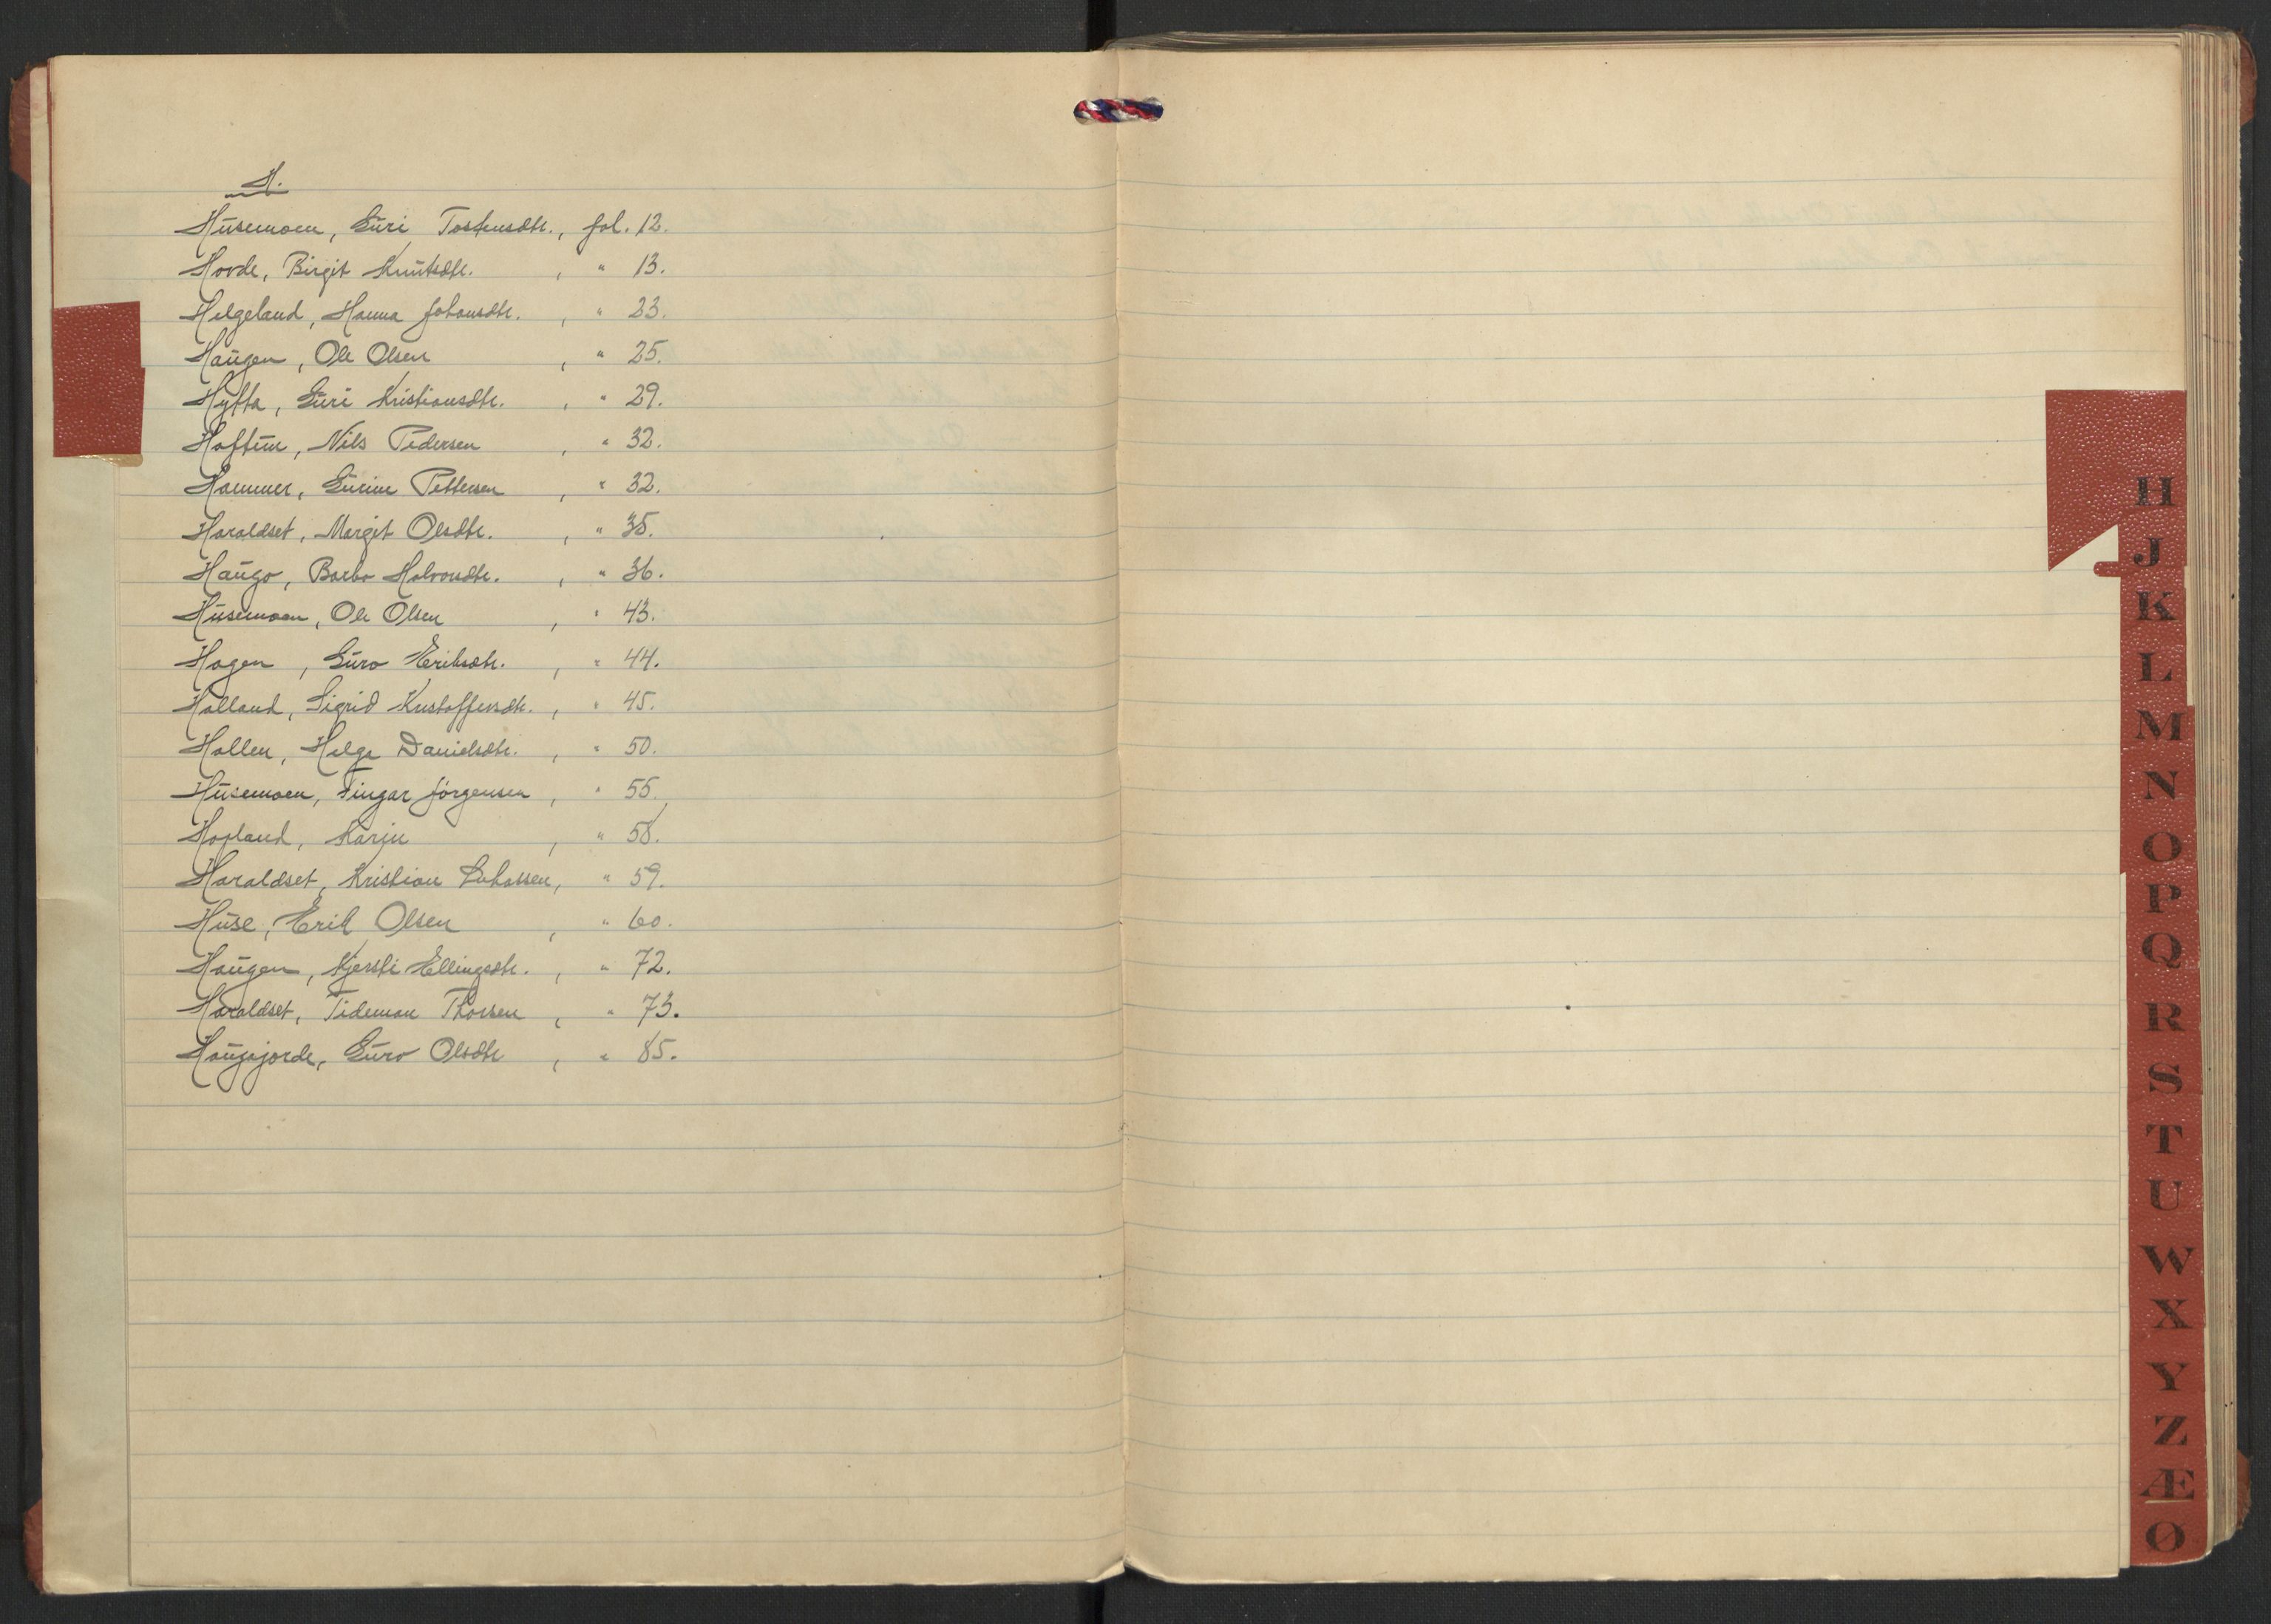 H.
Husemoen, Guri Tostensdtr., fol. 12.
Hovde, Birgit Knutsdtr. , " 13.
Helgeland, Hanna Johansdtr. , " 23.
Haugen, Ole Olsen , " 25.
Hytta, Guri Kristiansdtr. , " 29.
Hoftun, Nils Pedersen , " 32.
Hammer, Gurine Pettersen , " 32.
Haraldset, Margit Olsdtr. , " 35.
Haugo, Barbo Halvorsdtr. , " 36.
Husemoen, Ole Olsen , " 43.
Hagen, Guro Eriksdtr. , " 44.
Halland, Sigrid Kristoffersdtr. , " 45.
Hallen, Helge Danielsdtr. , " 50.
Husemoen, Fingar Jörgensen , " 55.
Hopland, Karin , " 58.
Haraldset, Kristian , " 59.
Huse, Erik Olsen , " 60.
Haugen, Kjersti Ellingsdtr. , " 72.
Haraldset, Tideman Thorsen , " 73.
Haugsjorde, Guro Olsdtr , " 85.
H
J
K
L
M
N
O
P
Q
R
S
T
U
W
X
Y
Z
Æ
Ø